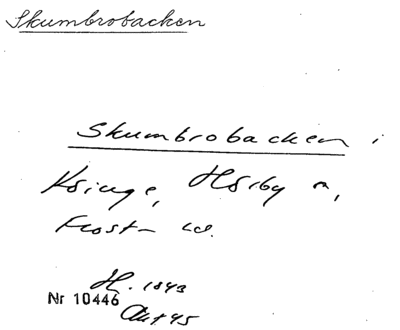 Skumbrobacken
Skumbrobacken i
Hörby
Frost
H. 1843
Nr 10446
Akt 45